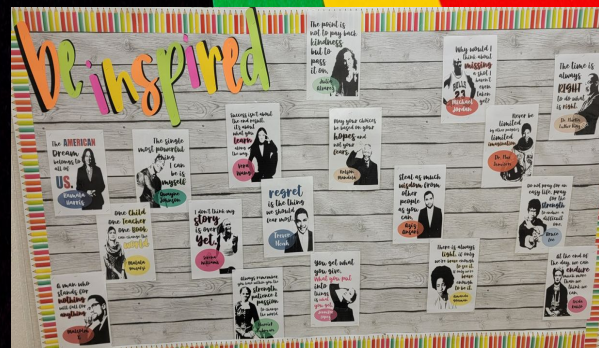 be inspired
The point is
not to pay back
kindness
but to
pass
it on.
Julia
Alvarez
Why would I
think about
missing
a shot I
haven't
even
taken
yet?
Michael
Jordan
The time is
always
RIGHT
to do what
is right.
The AMERICAN
Dream
belongs to
all of
US.
Kamala
Harris
The single
most powerful
thing
I can
be is
myself
Dwayne
Johnson
Success isn't about
the end result,
it's about
what you
learn
along
the way.
Vera
Wang
May your choices
be based on your
hopes and
not your
fears.
Nelson
Mandela
Never be
limited
by other people's
limited
imagination.
Dr. Mae
Jemison
One Child
one Teacher
one Book
Malala
I don't think my
story
is over
yet.
Serena
Williams
regret
is the thing
we should
fear most.
Trevor
Noah
Steal as much
wisdom from
other
people
as you
can.
Do not pray for an
easy life, pray
for the
strength
to endure a
difficult
one.
Bruce
Lee
A man who
stands for
nothing
will fall for
anything.
Malcolm
X
Always remember
you have within you the
strength,
patience &
passion
to change
the world.
Harriet
Tubman
You get what
you give.
What you put
into
things
is what
you get
There is always
light, if only
we're brave enough
to see it.
If only we're
brave
enough
to be it.
Amanda
Gorman
At the end of
the day, we can
endure
much more
than we
think we
can.
Frida
Kahlo